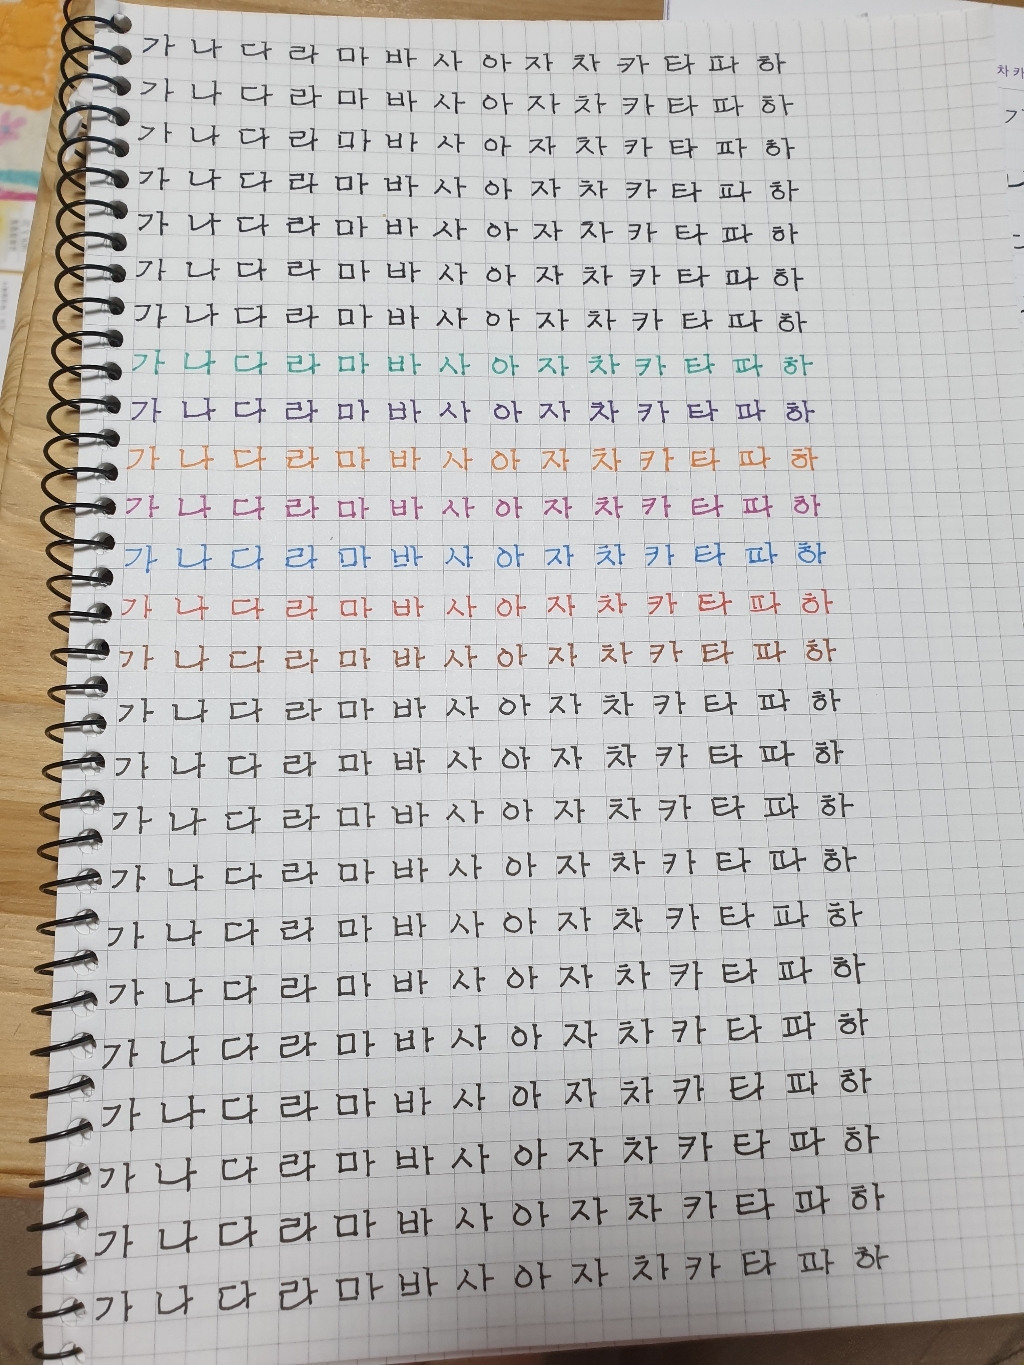 가 나 다 라 마 바 사 아 자 차 카 타 파 하
가 나 다 라 마 바 사 아 자 차 카 타 파 하
가 나 다 라 마 바 사 아 자 차 카 타 파 하
가 나 다 라 마 바 사 아 자 차 카 타 파 하
가 나 다 라 마 바 사 아 자 차 카 타 파 하
가 나 다 라 마 바 사 아 자 차 카 타 파 하
가 나 다 라 마 바 사 아 자 차 카 타 파 하
가 나 다 라 마 바 사 아 자 차 카 타 파 하
가 나 다 라 마 바 사 아 자 차 카 타 파 하
가 나 다 라 마 바 사 아 자 차 카 타 파 하
가 나 다 라 마 바 사 아 자 차 카 타 파 하
가 나 다 라 마 바 사 아 자 차 카 타 파 하
가 나 다 라 마 바 사 아 자 차 카 타 파 하
가 나 다 라 마 바 사 아 자 차 카 타 파 하
가 나 다 라 마 바 사 아 자 차 카 타 파 하
가 나 다 라 마 바 사 아 자 차 카 타 파 하
가 나 다 라 마 바 사 아 자 차 카 타 파 하
가 나 다 라 마 바 사 아 자 차 카 타 파 하
가 나 다 라 마 바 사 아 자 차 카 타 파 하
가 나 다 라 마 바 사 아 자 차 카 타 파 하
가 나 다 라 마 바 사 아 자 차 카 타 파 하
가 나 다 라 마 바 사 아 자 차 카 타 파 하
가 나 다 라 마 바 사 아 자 차 카 타 파 하
가 나 다 라 마 바 사 아 자 차 카 타 파 하
가 나 다 라 마 바 사 아 자 차 카 타 파 하
차 카